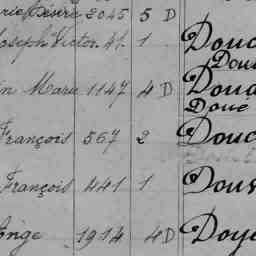 2045 5 D
Joseph Victor 41. 1 Douc
Dou
Marie 1147 4 D Doua
Doue
François 567 2 Douc
François 441 1 Dous
Ange 1914 4 D Doye